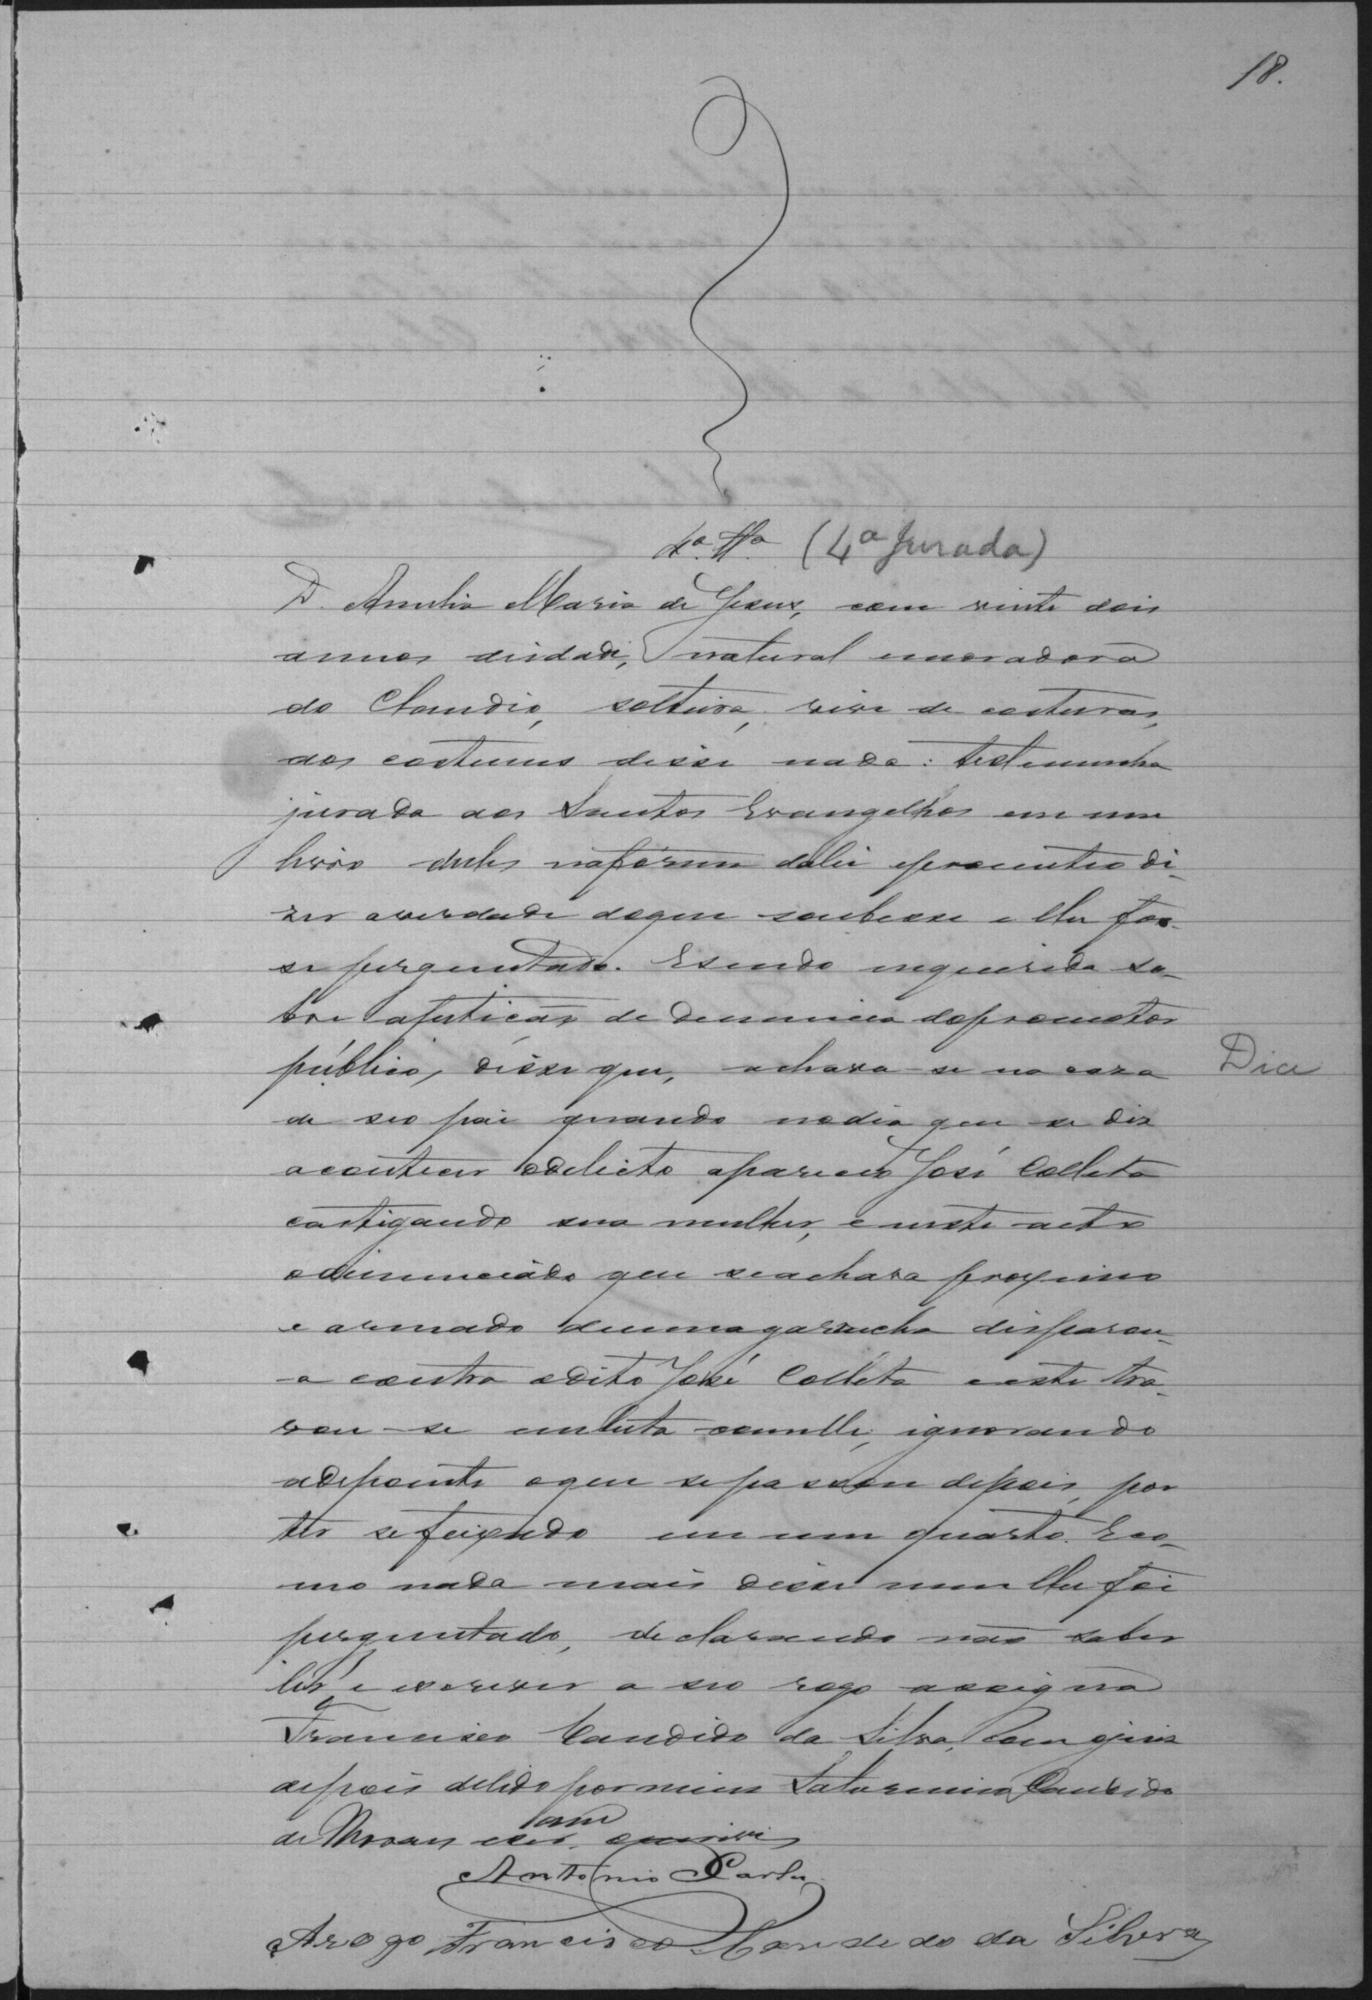 18.
4ª Tª (4ª Jurada)
D. Amelia Maria de Jesus, com vinte dois
annos didade, natural emoradora
do Claudio, solteira, vive de costuras,
aos costumes disse nada: testemunha
jurada aos Santos Evangelhos em um
livro delles naforma dalei eprometeo di-
zer averdade doque soubesse e lhe fos-
se perguntado. Esendo inquerida so-
bre apetição de denuncia dopromotor
público, disse que, achava-se na caza
de seo pai quando nodia que se diz
acontecer odelicto apareceo José Colleta
castigando sua mulher, e neste acto
odenunciado que seachava proximo
e armado deumagarrucha disparou-
a contra odito José Colleta e este tra-
vou-se emluta comelle, ignorando
adepoente oque sepassou depois, por
ter sefeixado em um quarto. Eco-
mo nada mais disse nem lhe foi
perguntado, declarando não saber
ler, e escrever a seo rogo assigna
Francisco Candido da Silva, com ojuiz
depois delido por mim Saturnino Candido
de Moraes escram escrivi
Antonio
Arogo Francisco Candido da Silva
Dice